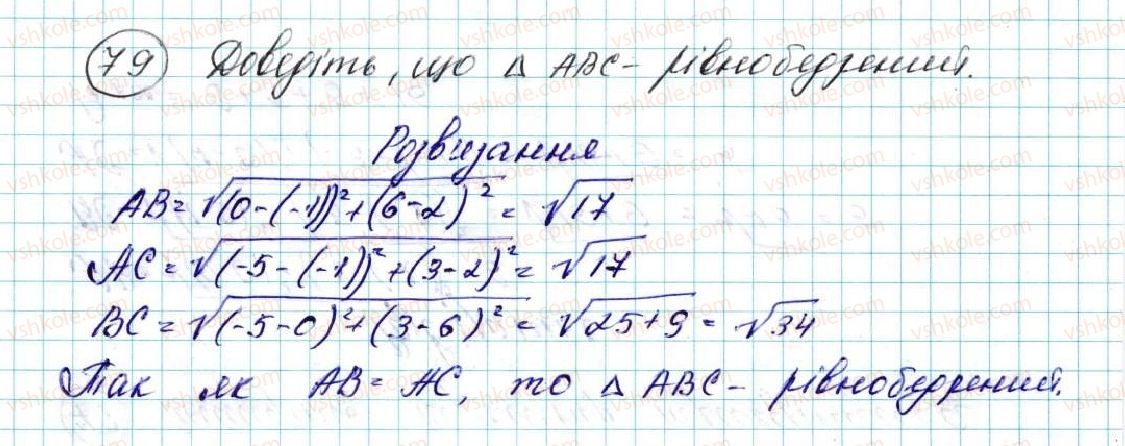 79 Доведіть, що △ ABC - рівнобедрений.
Розвизання
AB = √(0-(-1))²+(6-2)² = √17
AC = √(-5-(-1))²+(3-2)² = √17
BC = √(-5-0)²+(3-6)² = √25+9 = √34
Так як AB = AC, то △ ABC - рівнобедрений.